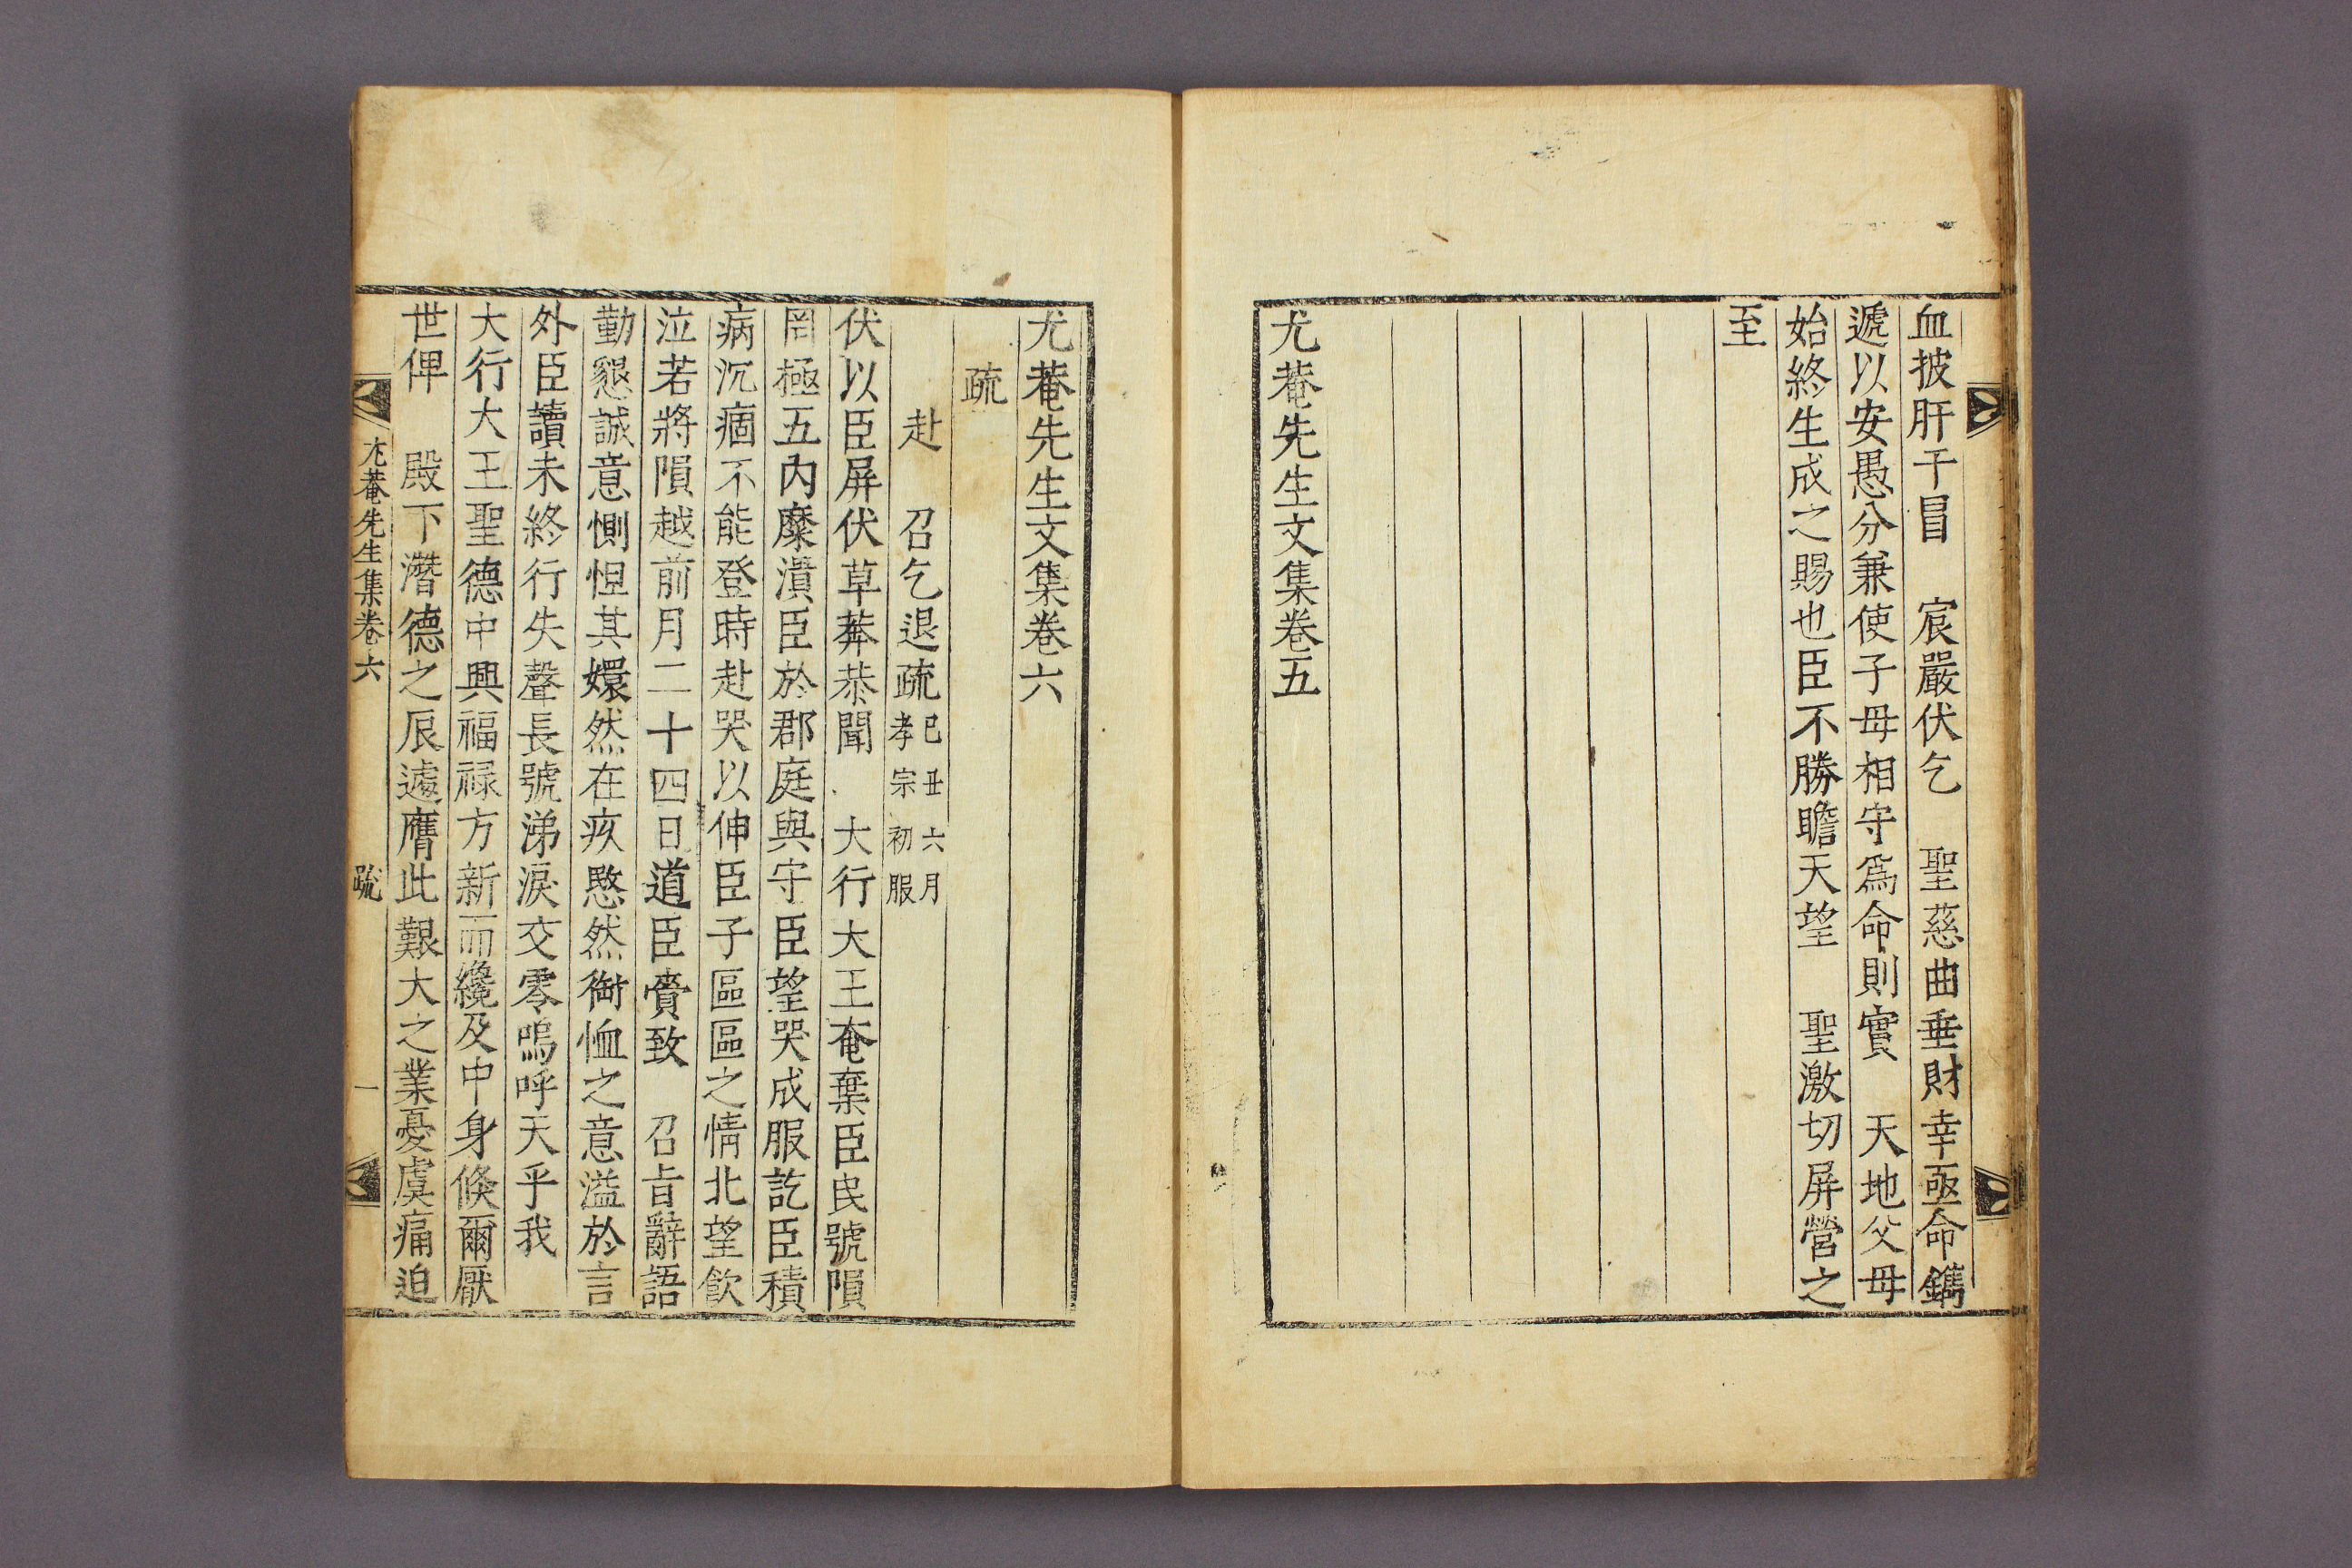 血披肝干冒　宸嚴伏乞　聖慈曲垂財幸亟命鐫
遞以安愚分兼使子母相守爲命則實　天地父母
始終生成之賜也臣不勝瞻天望　聖激切屛營之
至
尤菴先生文集卷五
尤菴先生文集卷六
疏
赴　召乞退疏
己丑六月
孝宗初服
伏以臣屛伏草莽恭聞　大行大王奄棄臣民號隕
罔極五內糜潰臣於郡庭與守臣望哭成服訖臣積
病沉痼不能登時赴哭以伸臣子區區之情北望飮
泣若將隕越前月二十四日道臣賫致　召旨辭語
勤懇誠意惻怛其嬛然在疚慜然銜恤之意溢於言
外臣讀未終行失聲長號涕淚交零嗚呼天乎我
大行大王聖德中興福祿方新而纔及中身倏爾厭
世俾　殿下潛德之辰遽膺此艱大之業憂虞痛迫
尤菴先生集卷六　疏　一